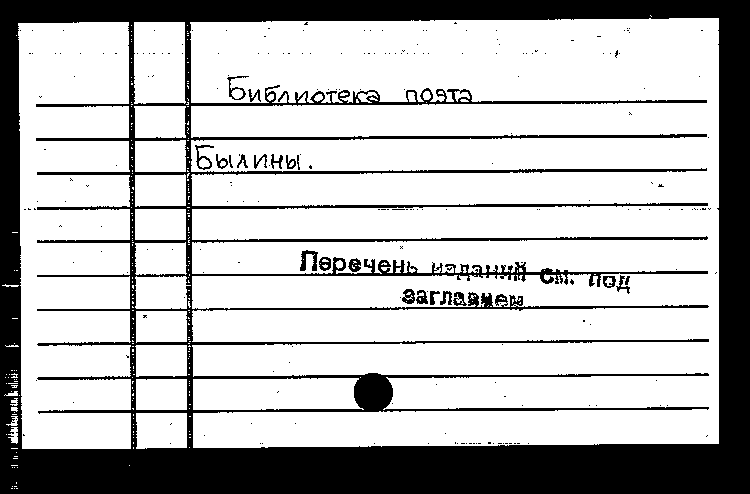 Библиотека поэта
Былины.
Перечень изданий см. под
заглавием